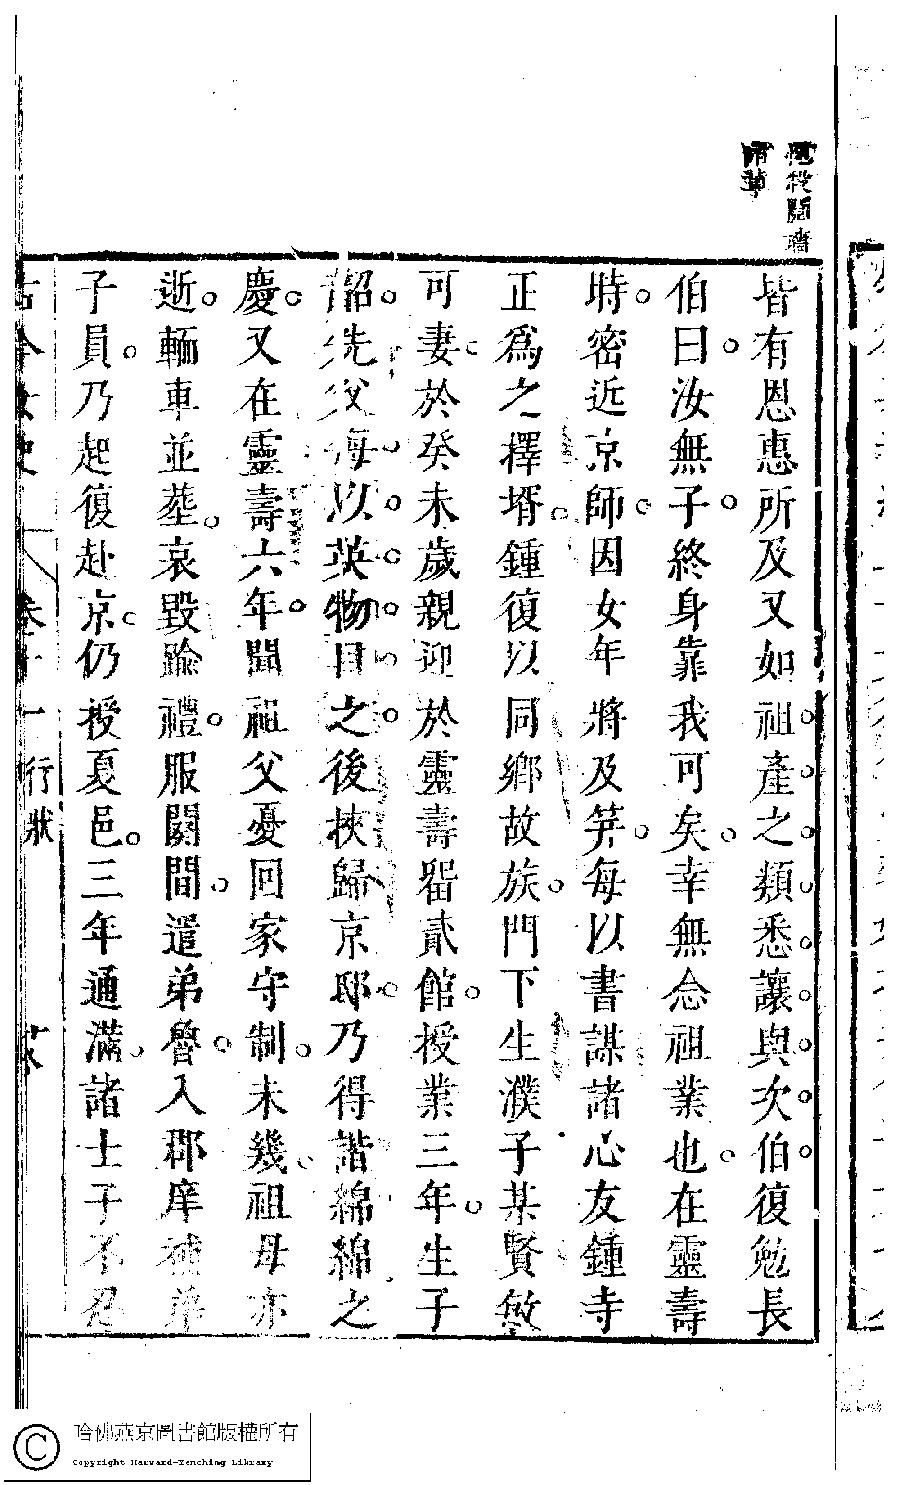 皆有恩惠所及又如祖產之類悉讓與次伯復勉長
伯曰汝無子終身靠我可矣幸無念祖業也在靈壽
時密近京師因女年將及笄每以書謀諸心友鍾寺
正爲之擇壻鍾復以同鄉故族門下生濮子某賢敏
可妻於癸未歲親迎於靈壽畱貳館授業三年生子
韶先父海以英物目之後挾歸京邸乃得諧綿綿之
慶又在靈壽六年聞祖父憂回家守制未幾祖母亦
逝輀車並塟哀毀踰禮服闋間遣弟魯入郡庠補弟
子員乃起復赴京仍授夏邑三年通滿諸士子不忍
古今女史
卷十一
行狀
哈佛燕京圖書館版權所有
Copyright Harvard-Yenching Library